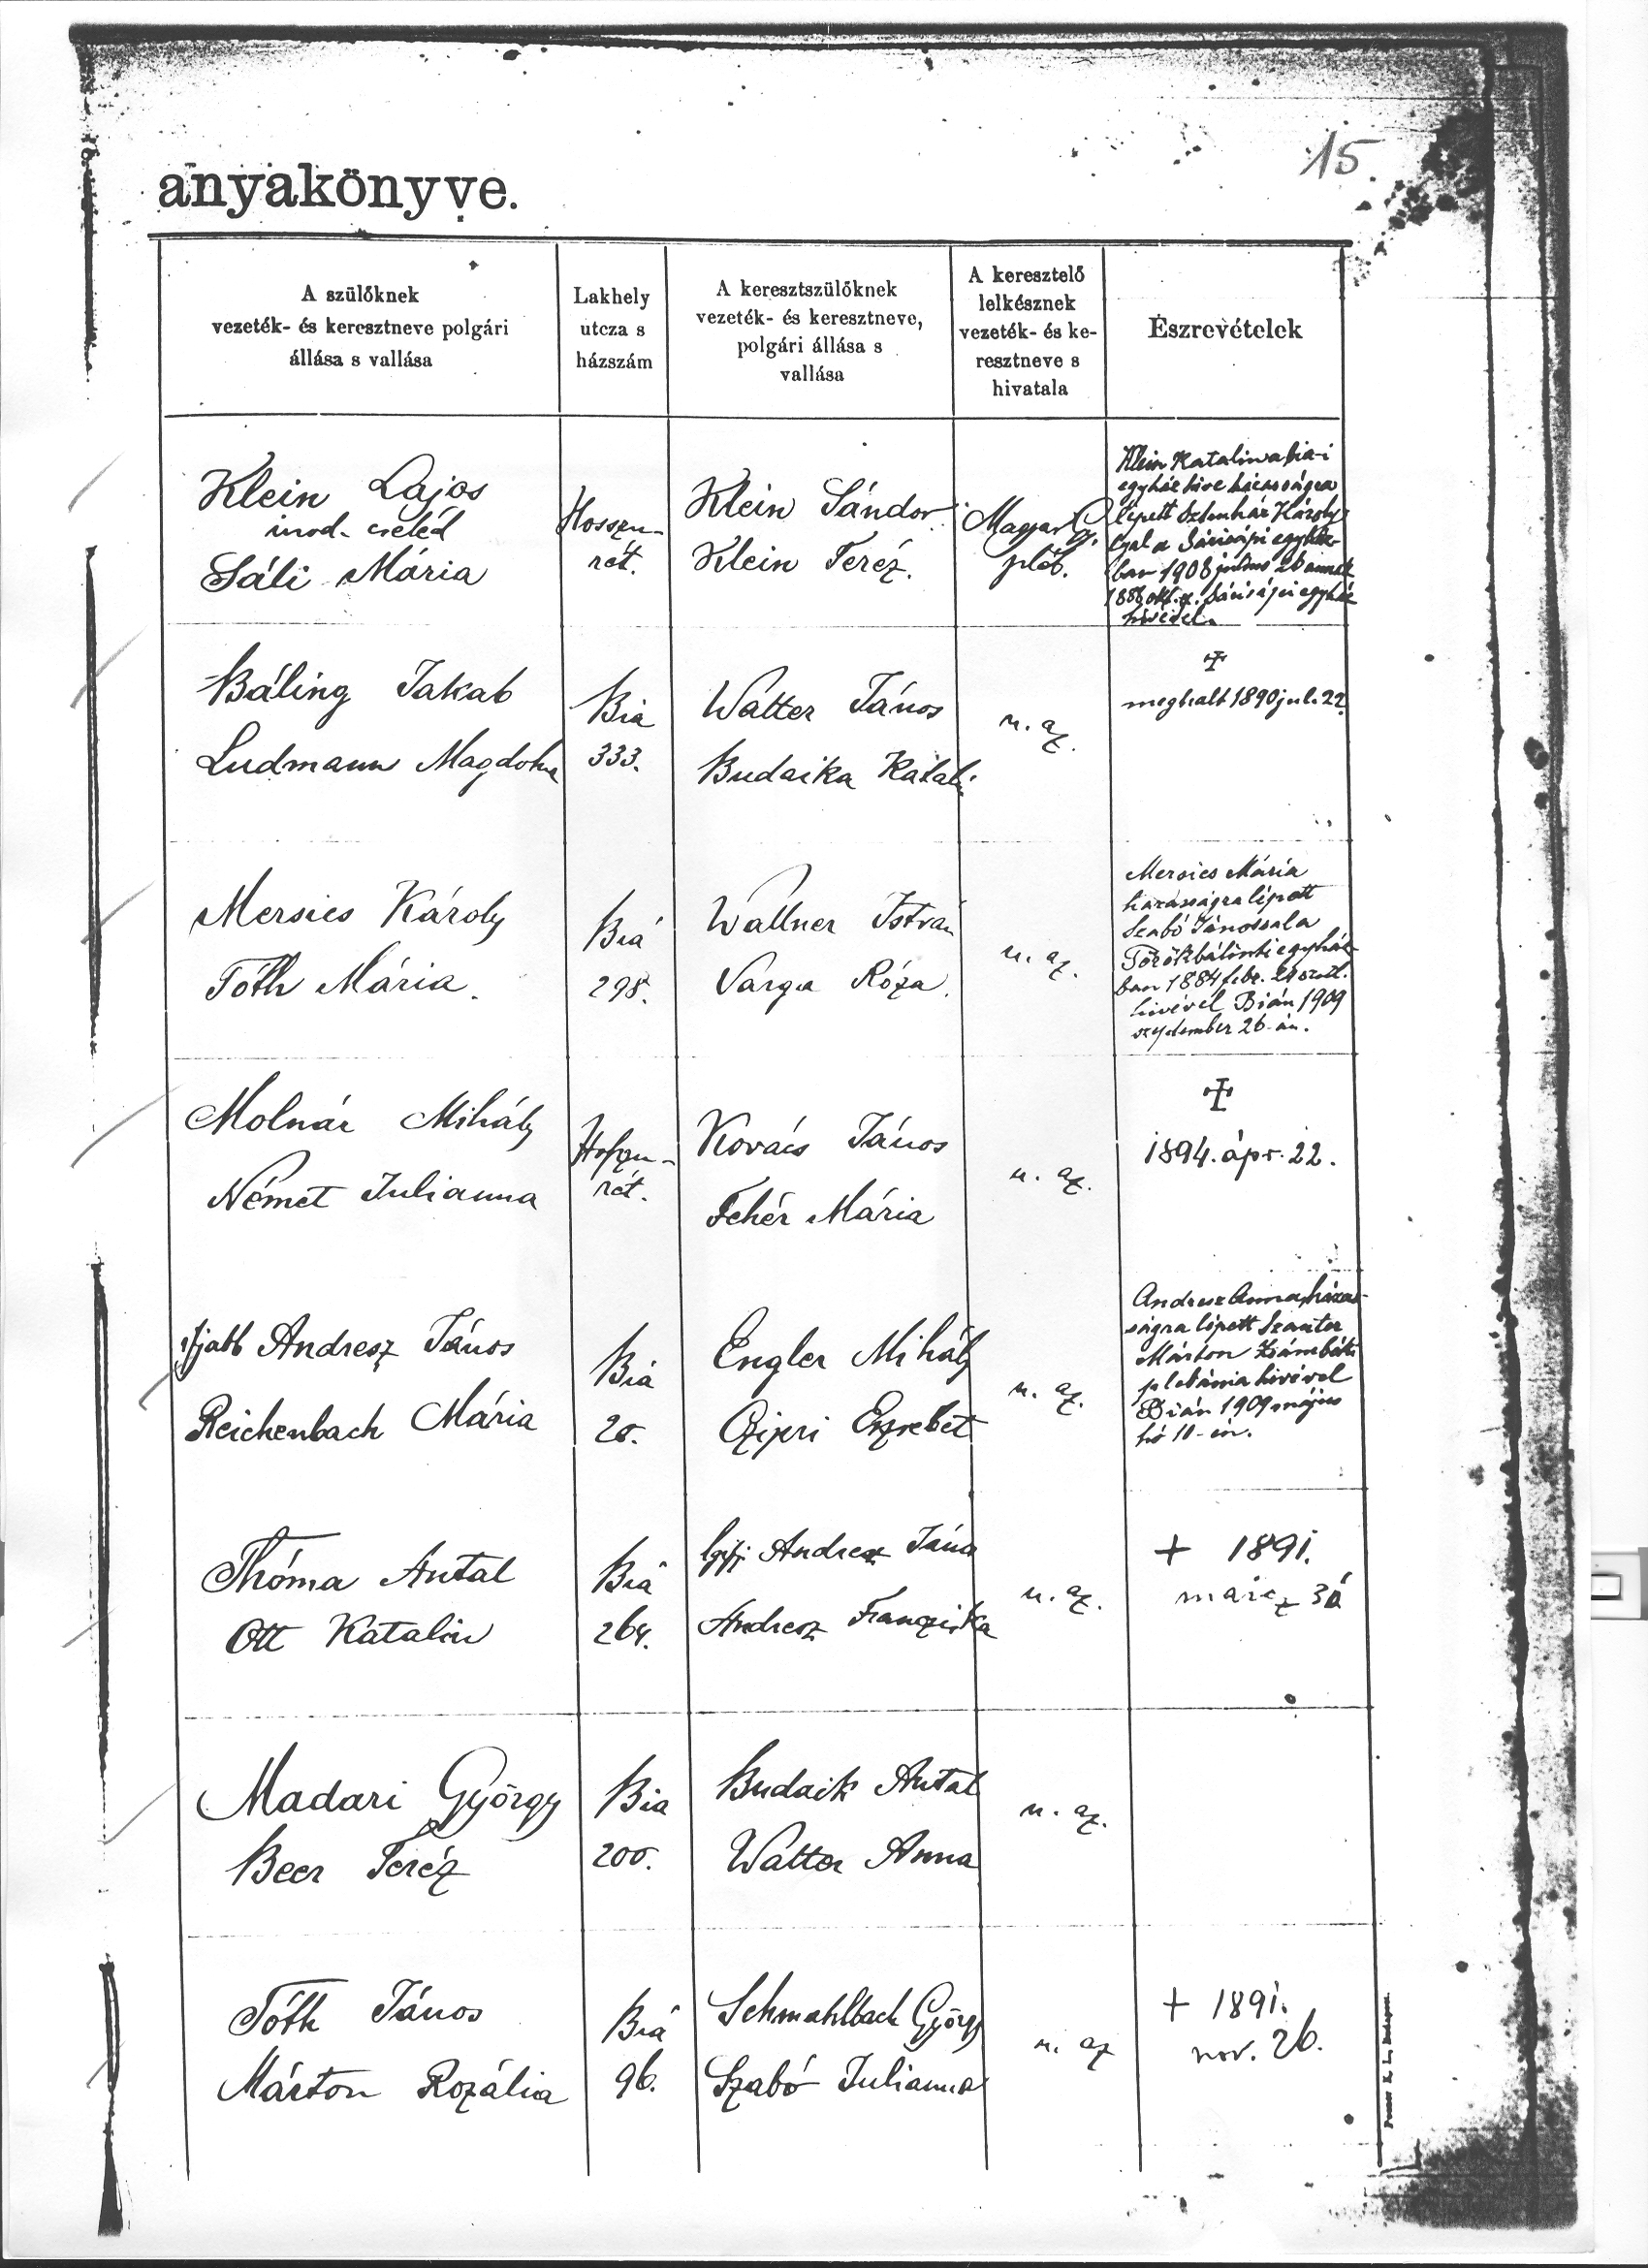 15.
anyakönyve.
A szülőknek
vezeték- és keresztneve polgári
állása s vallása
Lakhely
utcza s
házszám
A keresztszülőknek
vezeték- és keresztneve,
polgári állása s
vallása
A keresztelő
lelkésznek
vezeték- és ke-
resztneve s
hivatala
Észrevételek
Klein Lajos
urod. cseléd
Sáli Mária
Hosszu-
rét.
Klein Sándor
Klein Teréz.
Magyar G.
pléb.
Klein Katalin a bia-i
egyház hive házasságra
lépett Károly-
lyal a Sárisápi egyház-
ban 1908 julius
1886 okt. Sárisápi egyház
hivével.
Báling Jakab
Ludmann Magdolna
Bia
333.
Walter János
Budaika Katalin
u. az.
meghalt 1890 jul. 22.
Mersics Károly
Tóth Mária.
Biá
298.
Wallner István
Varga Róza.
u. az.
Mersics Mária
házasságra lépett
Szabó Jánossal a
Törökbálinti egyház-
ban 1884 febr. szül.
hivével Bián 1909
szeptember 26-án.
Molnár Mihály
Német Julianna
Hoszu-
rét.
Kovács János
Fehér Mária
u. az.
1894. ápr. 22.
ifjabb Andresz János
Reichenbach Mária
Biá
20.
Engler Mihály
Czipri Erzsebet
u. az.
Andresz Anna háza-
ságra lépett Szauter
Márton Zsámbéki
plébánia hivével
Bián 1909 május
hó 10-én.
Thóma Antal
Ott Katalin
Biá
264.
Andresz János
Andresz Franziska
u. az.
+ 1891.
márcz 30
Madari György
Beer Teréz
Bia
200.
Budaik Antal
Walter Anna
u. az.
Tóth János
Márton Rozália
Biá
96.
Schmahlbach György
Szabó Julianna
u. az
+ 1891.
nov. 26.